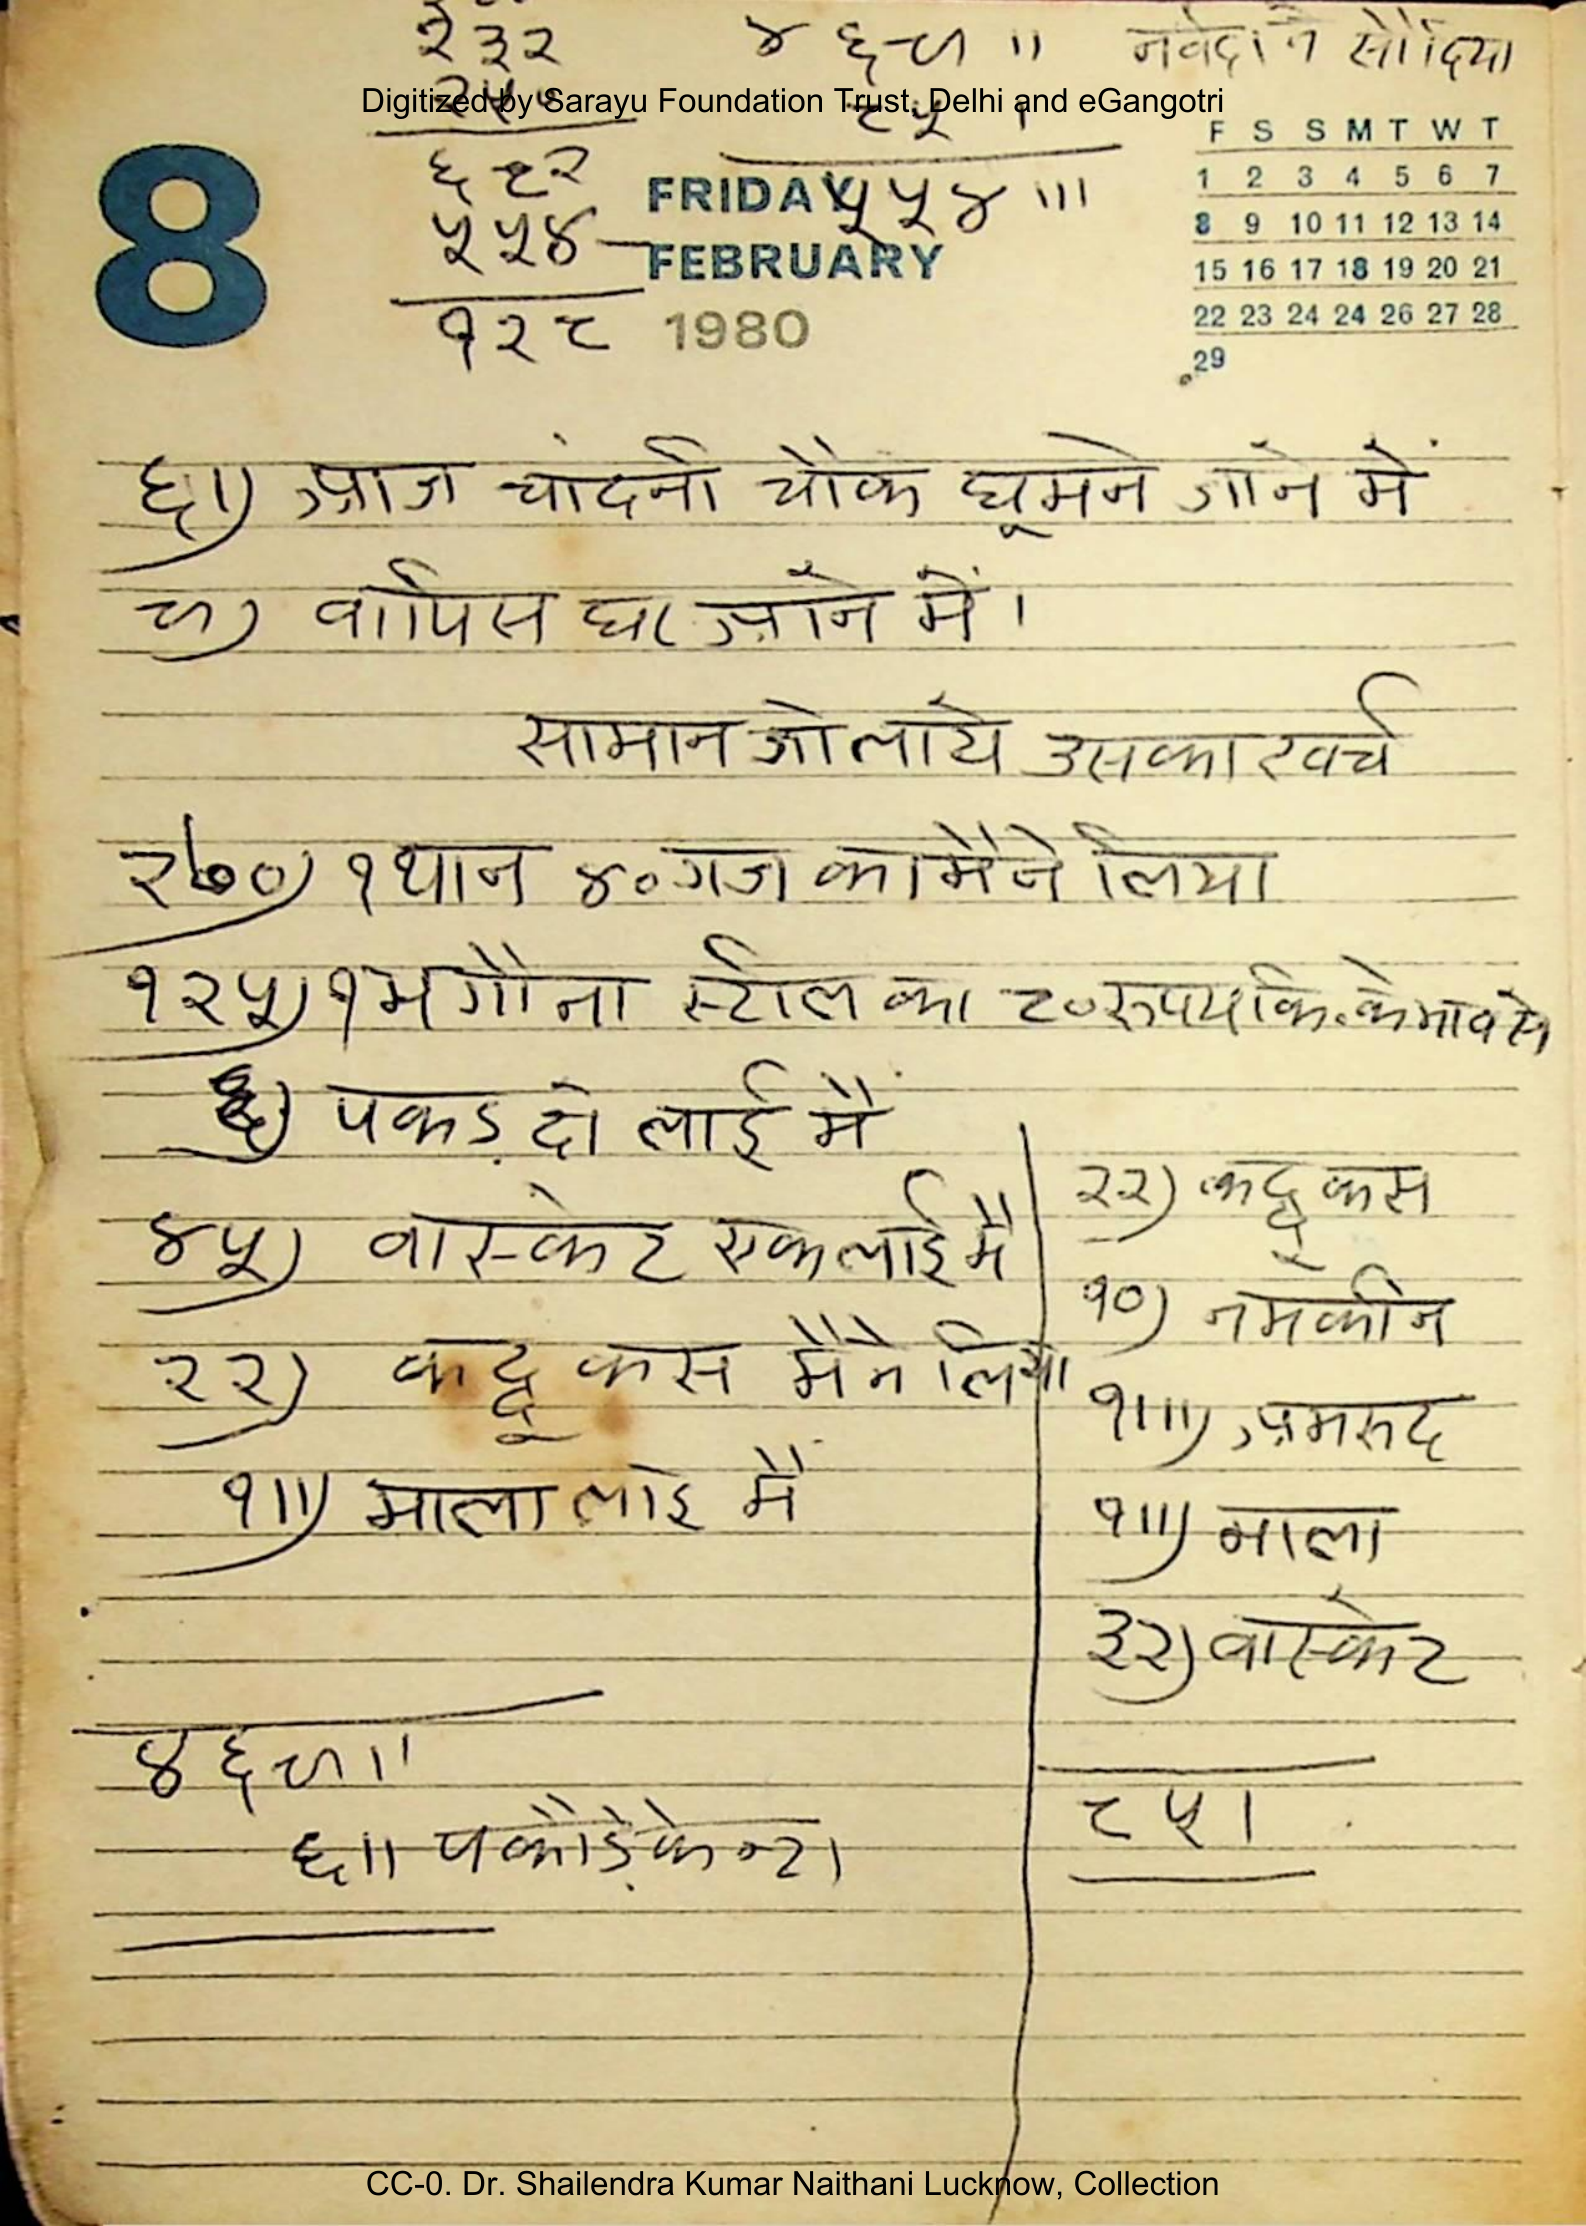 २३२ ४६९॥ नर्वदा ने सौ दिया
Digitized by Sarayu Foundation Trust, Delhi and eGangotri
८५।
६८२
५५४॥।
५५४
१२८
8
FRIDAY
FEBRUARY
1980
F S S M T W T
1 2 3 4 5 6 7
8 9 10 11 12 13 14
15 16 17 18 19 20 21
22 23 24 24 26 27 28
29
६॥) आज चांदनी चौक घूमने जाने में
९) वापिस घर आने में।
सामान जो लाये उसका खर्च
२७०) १ थान ४० गज का मैने लिया
१२५) १ भगौना स्टील का ८० रुपय कि. के भाव से
६) पकड़ दो लाई मैं
४५) वास्केट एक लाई मैं
२२) कद्दूकस मैने लिया
१॥) माला लाइ मैं
४६९॥
६॥ पकौड़े केन्टी
२२) कद्दूकस
१०) नमकीन
१॥।) अमरुद
१॥) माला
३२) वास्केट
८५।
CC-0. Dr. Shailendra Kumar Naithani Lucknow, Collection